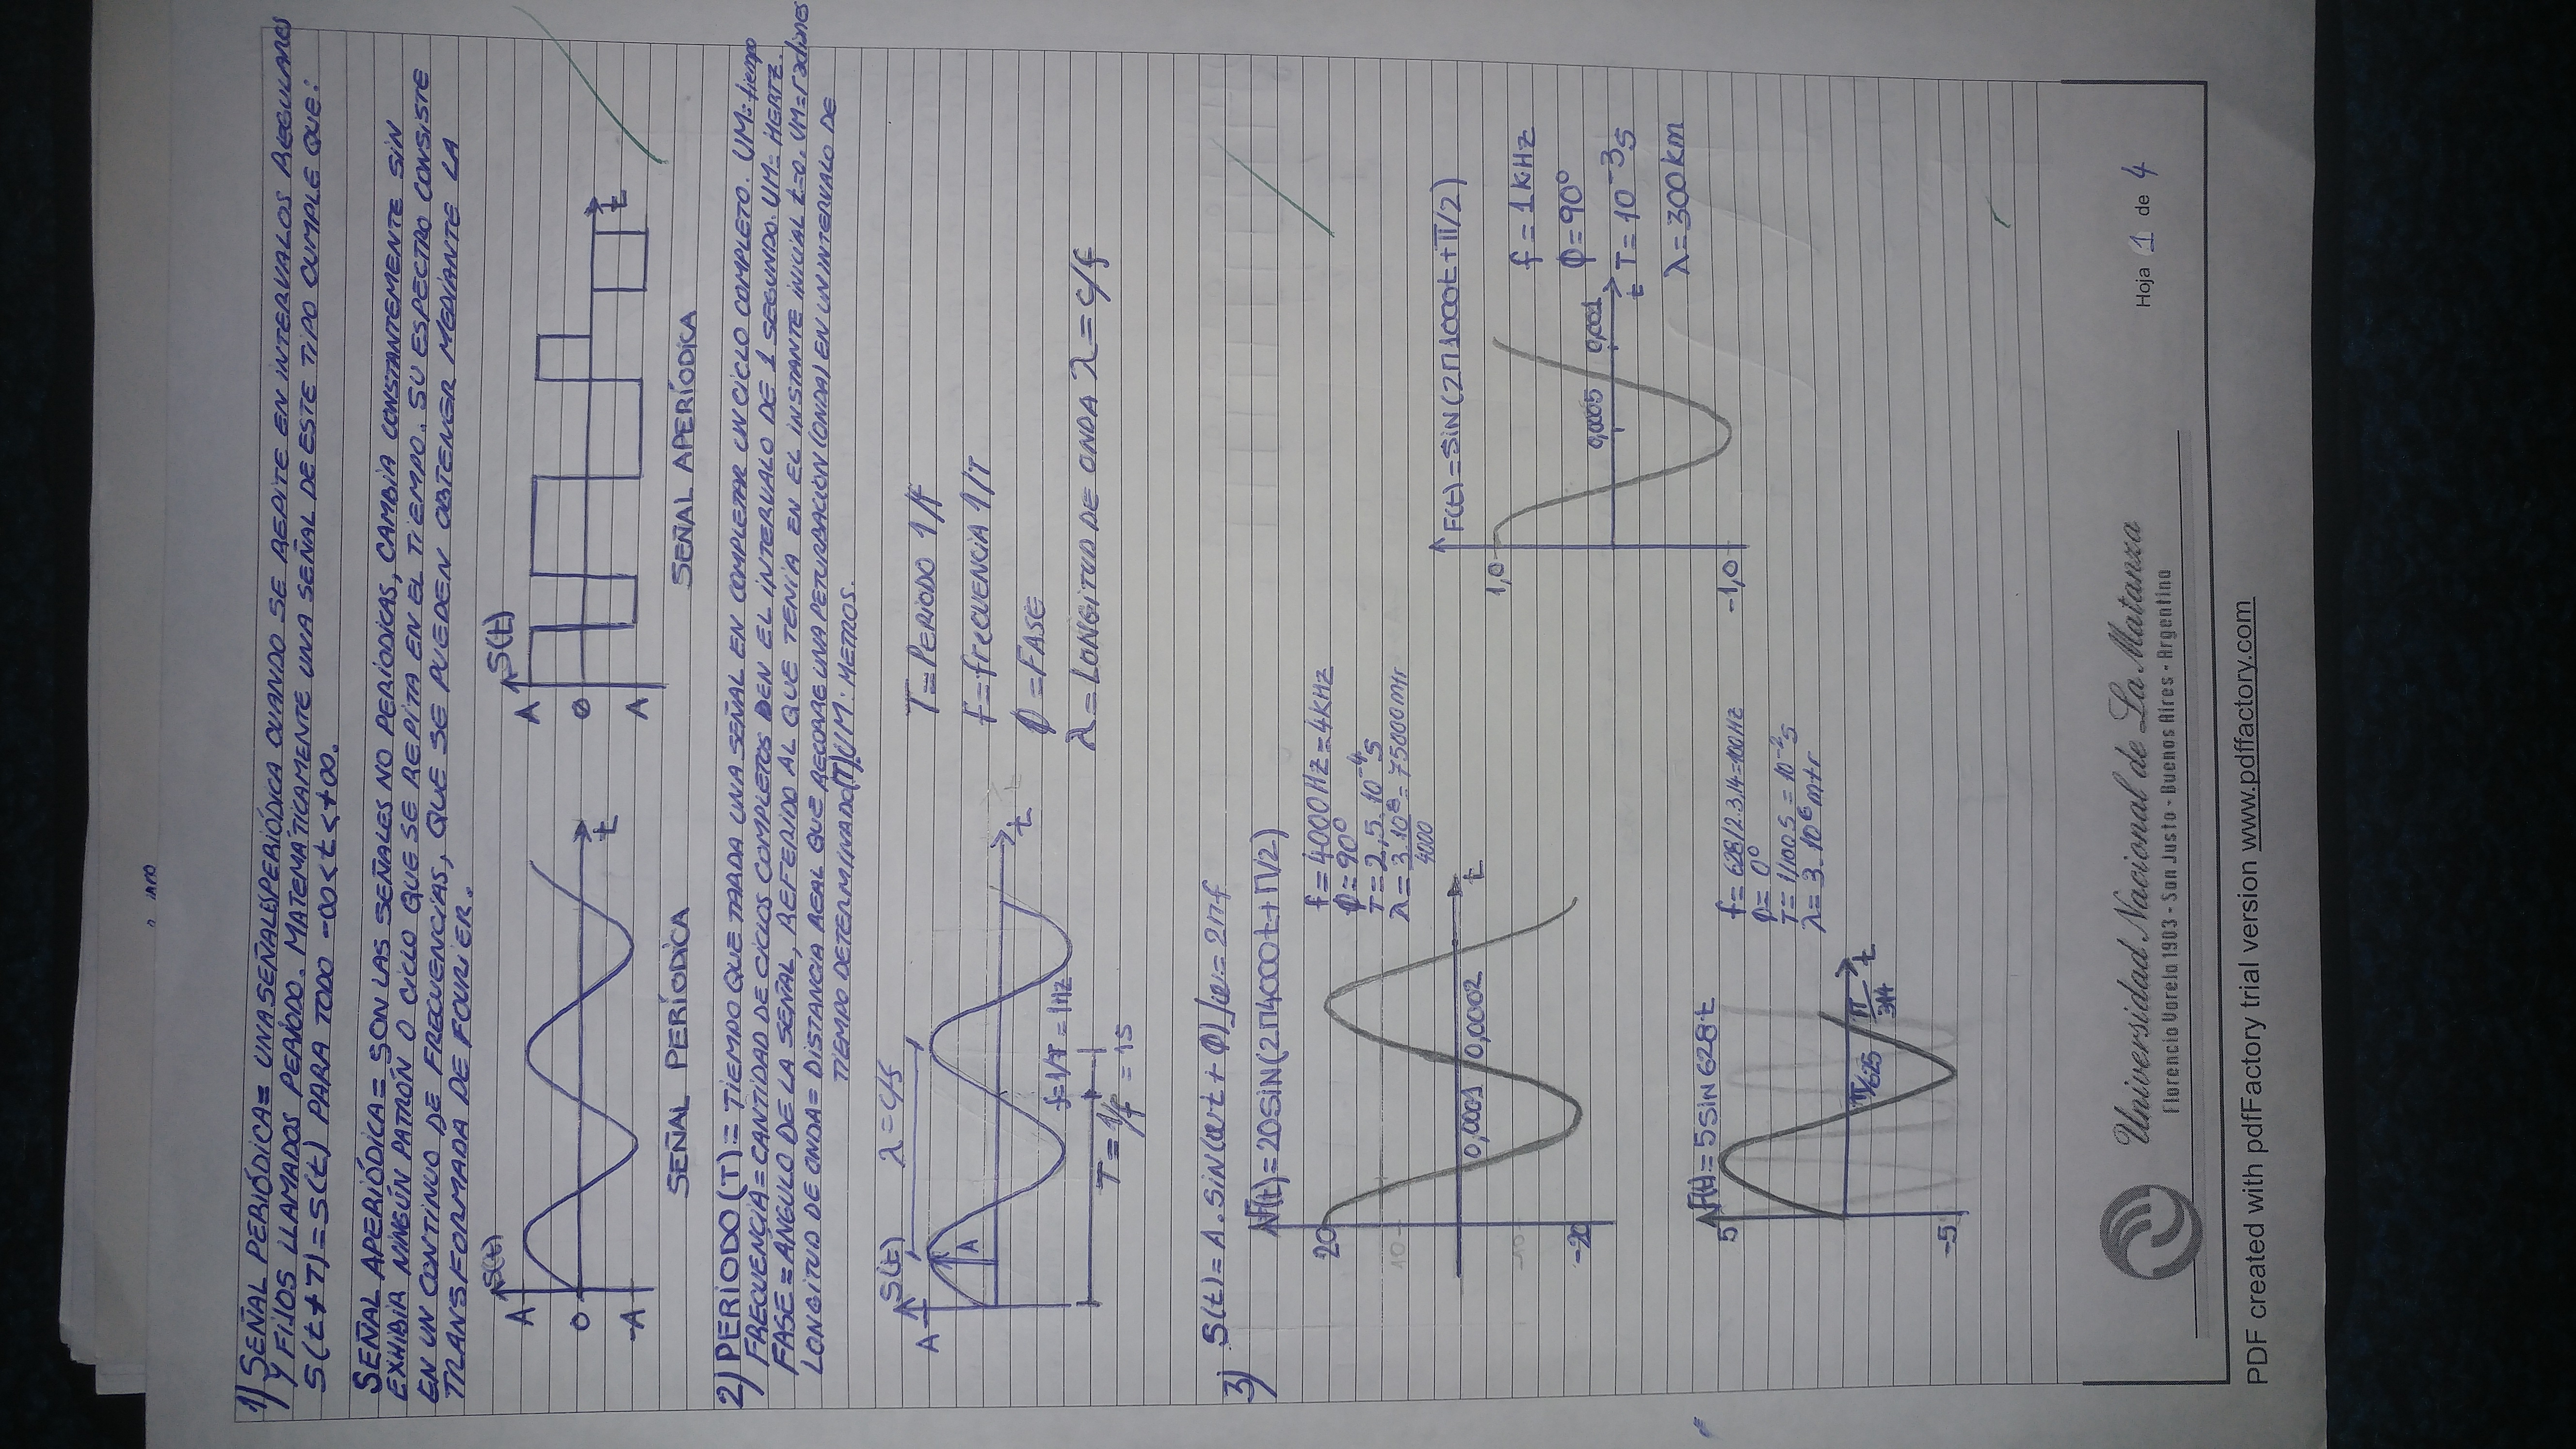 1) SEÑAL PERIÓDICA= UNA SEÑAL ES PERIÓDICA CUANDO SE REPITE EN INTERVALOS REGULARES
Y FIJOS LLAMADOS PERÍODO. MATEMÁTICAMENTE UNA SEÑAL DE ESTE TIPO CUMPLE QUE:
S(t+T)=S(t) PARA TODO -∞<t<+∞.
SEÑAL APERIÓDICA= SON LAS SEÑALES NO PERIODICAS, CAMBIA CONSTANTEMENTE SIN
EXHIBIR NINGÚN PATRÓN O CICLO QUE SE REPITA EN EL TIEMPO. SU ESPECTRO CONSISTE
EN UN CONTINUO DE FRECUENCIAS, QUE SE PUEDEN OBTENER MEDIANTE LA
TRANSFORMADA DE FOURIER.
S(t)
A
0
-A
t
SEÑAL PERÍODICA
S(t)
A
0
A
t
SEÑAL APERÍODICA
2) PERIODO (T)= TIEMPO QUE TARDA UNA SEÑAL EN COMPLETAR UN CICLO COMPLETO. UM=tiempo
FRECUENCIA=CANTIDAD DE CICLOS COMPLETOS EN EL INTERVALO DE 1 SEGUNDO. UM= HERTZ.
FASE=ÁNGULO DE LA SEÑAL, REFERIDO AL QUE TENÍA EN EL INSTANTE INICIAL t=0. UM=radianes
LONGITUD DE ONDA= DISTANCIA REAL QUE RECORRE UNA PETURBACION (ONDA) EN UN INTERVALO DE
TIEMPO DETERMINADO(T). UM: METROS.
S(t)
λ=c/f
A
A
t
f=1/T = 1Hz
T= 1/f = 1S
T=PERIODO 1/f
f=frecuencia 1/T
Φ=FASE
λ=LONGITUD DE ONDA λ=c/f
3) S(t)= A. SIN(ωt + Φ) /ω= 2πf
F(t)=20SIN(2π4000t+π/2)
20
10
-10
-20
0,0001
0,0002
t
f=4000Hz=4KHz
Φ=90°
T=2,5.10⁻⁴S
λ=3.10⁸/4000=75000mtr
F(t)=SIN(2π1000t+π/2)
1,0
0,0005
0,001
-1,0
t
f=1KHz
Φ=90°
T=10⁻³S
λ=300km
F(t)=5SIN628t
5
π/625
π/314
t
-5
f= 628/2.3,14=100Hz
Φ= 0°
T= 1/100S = 10⁻²S
λ= 3.10⁶mtr
Universidad Nacional de La Matanza
Florencio Varela 1903 - San Justo - Buenos Aires - Argentina
Hoja 1 de 4
PDF created with pdfFactory trial version www.pdffactory.com